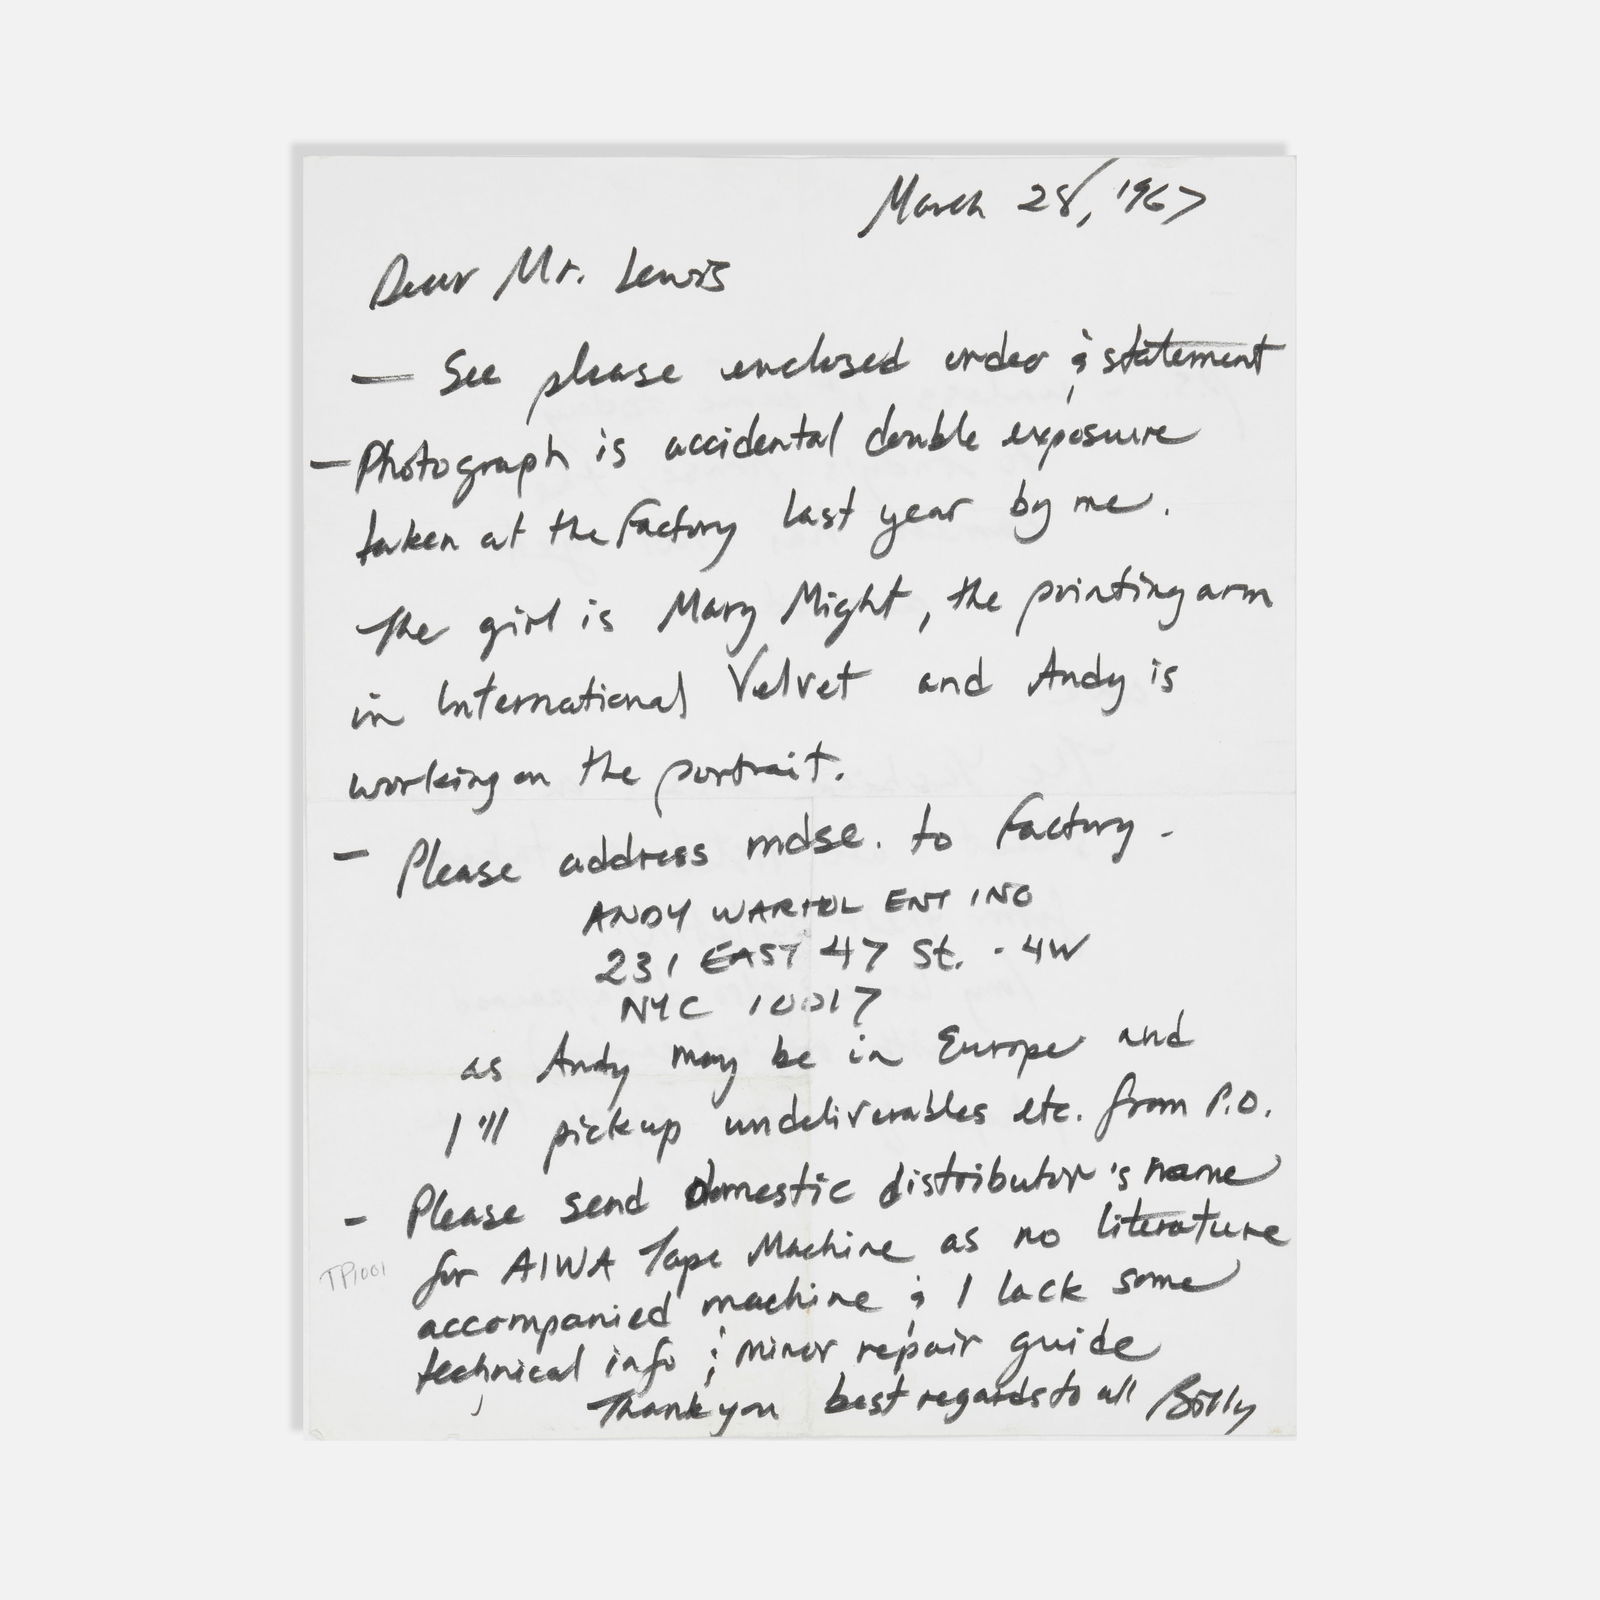 March 28, 1967
Dear Mr. Lewis
— See please enclosed order & statement
— Photograph is accidental double exposure
taken at the Factory last year by me.
The girl is Mary Might, the printing arm
in International Velvet and Andy is
working on the portrait.
- Please address mdse. to Factory -
ANDY WARHOL ENT INC
231 EAST 47 St. - 4W
NYC 10017
as Andy may be in Europe and
I'll pickup undeliverables etc. from P.O.
- Please send domestic distributor's name
for AIWA Tape Machine as no literature
TP1001
accompanied machine & I lack some
technical info & minor repair guide
Thank you best regards to all Billy